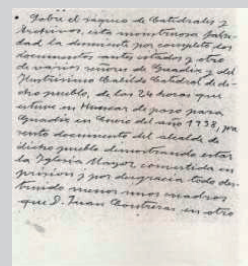 Sobre el saqueo de Catedrales y
Archivos, esta monstruosa false-
dad la desmiente por completo dos
documentos antes citados y otro
de varios señores de Guadix y del
Ilustrísimo Cabildo Catedral de di-
cho pueblo, de las 24 horas que
estuve en Huescar de paso para
Guadix en Enero del año 1938, pre-
sento documento del alcalde de
dicho pueblo demostrando estar
la Iglesia Mayor convertida en
prisión y por desgracia todo des-
truido menos unos cuadros
que D. Juan Contreras en otro